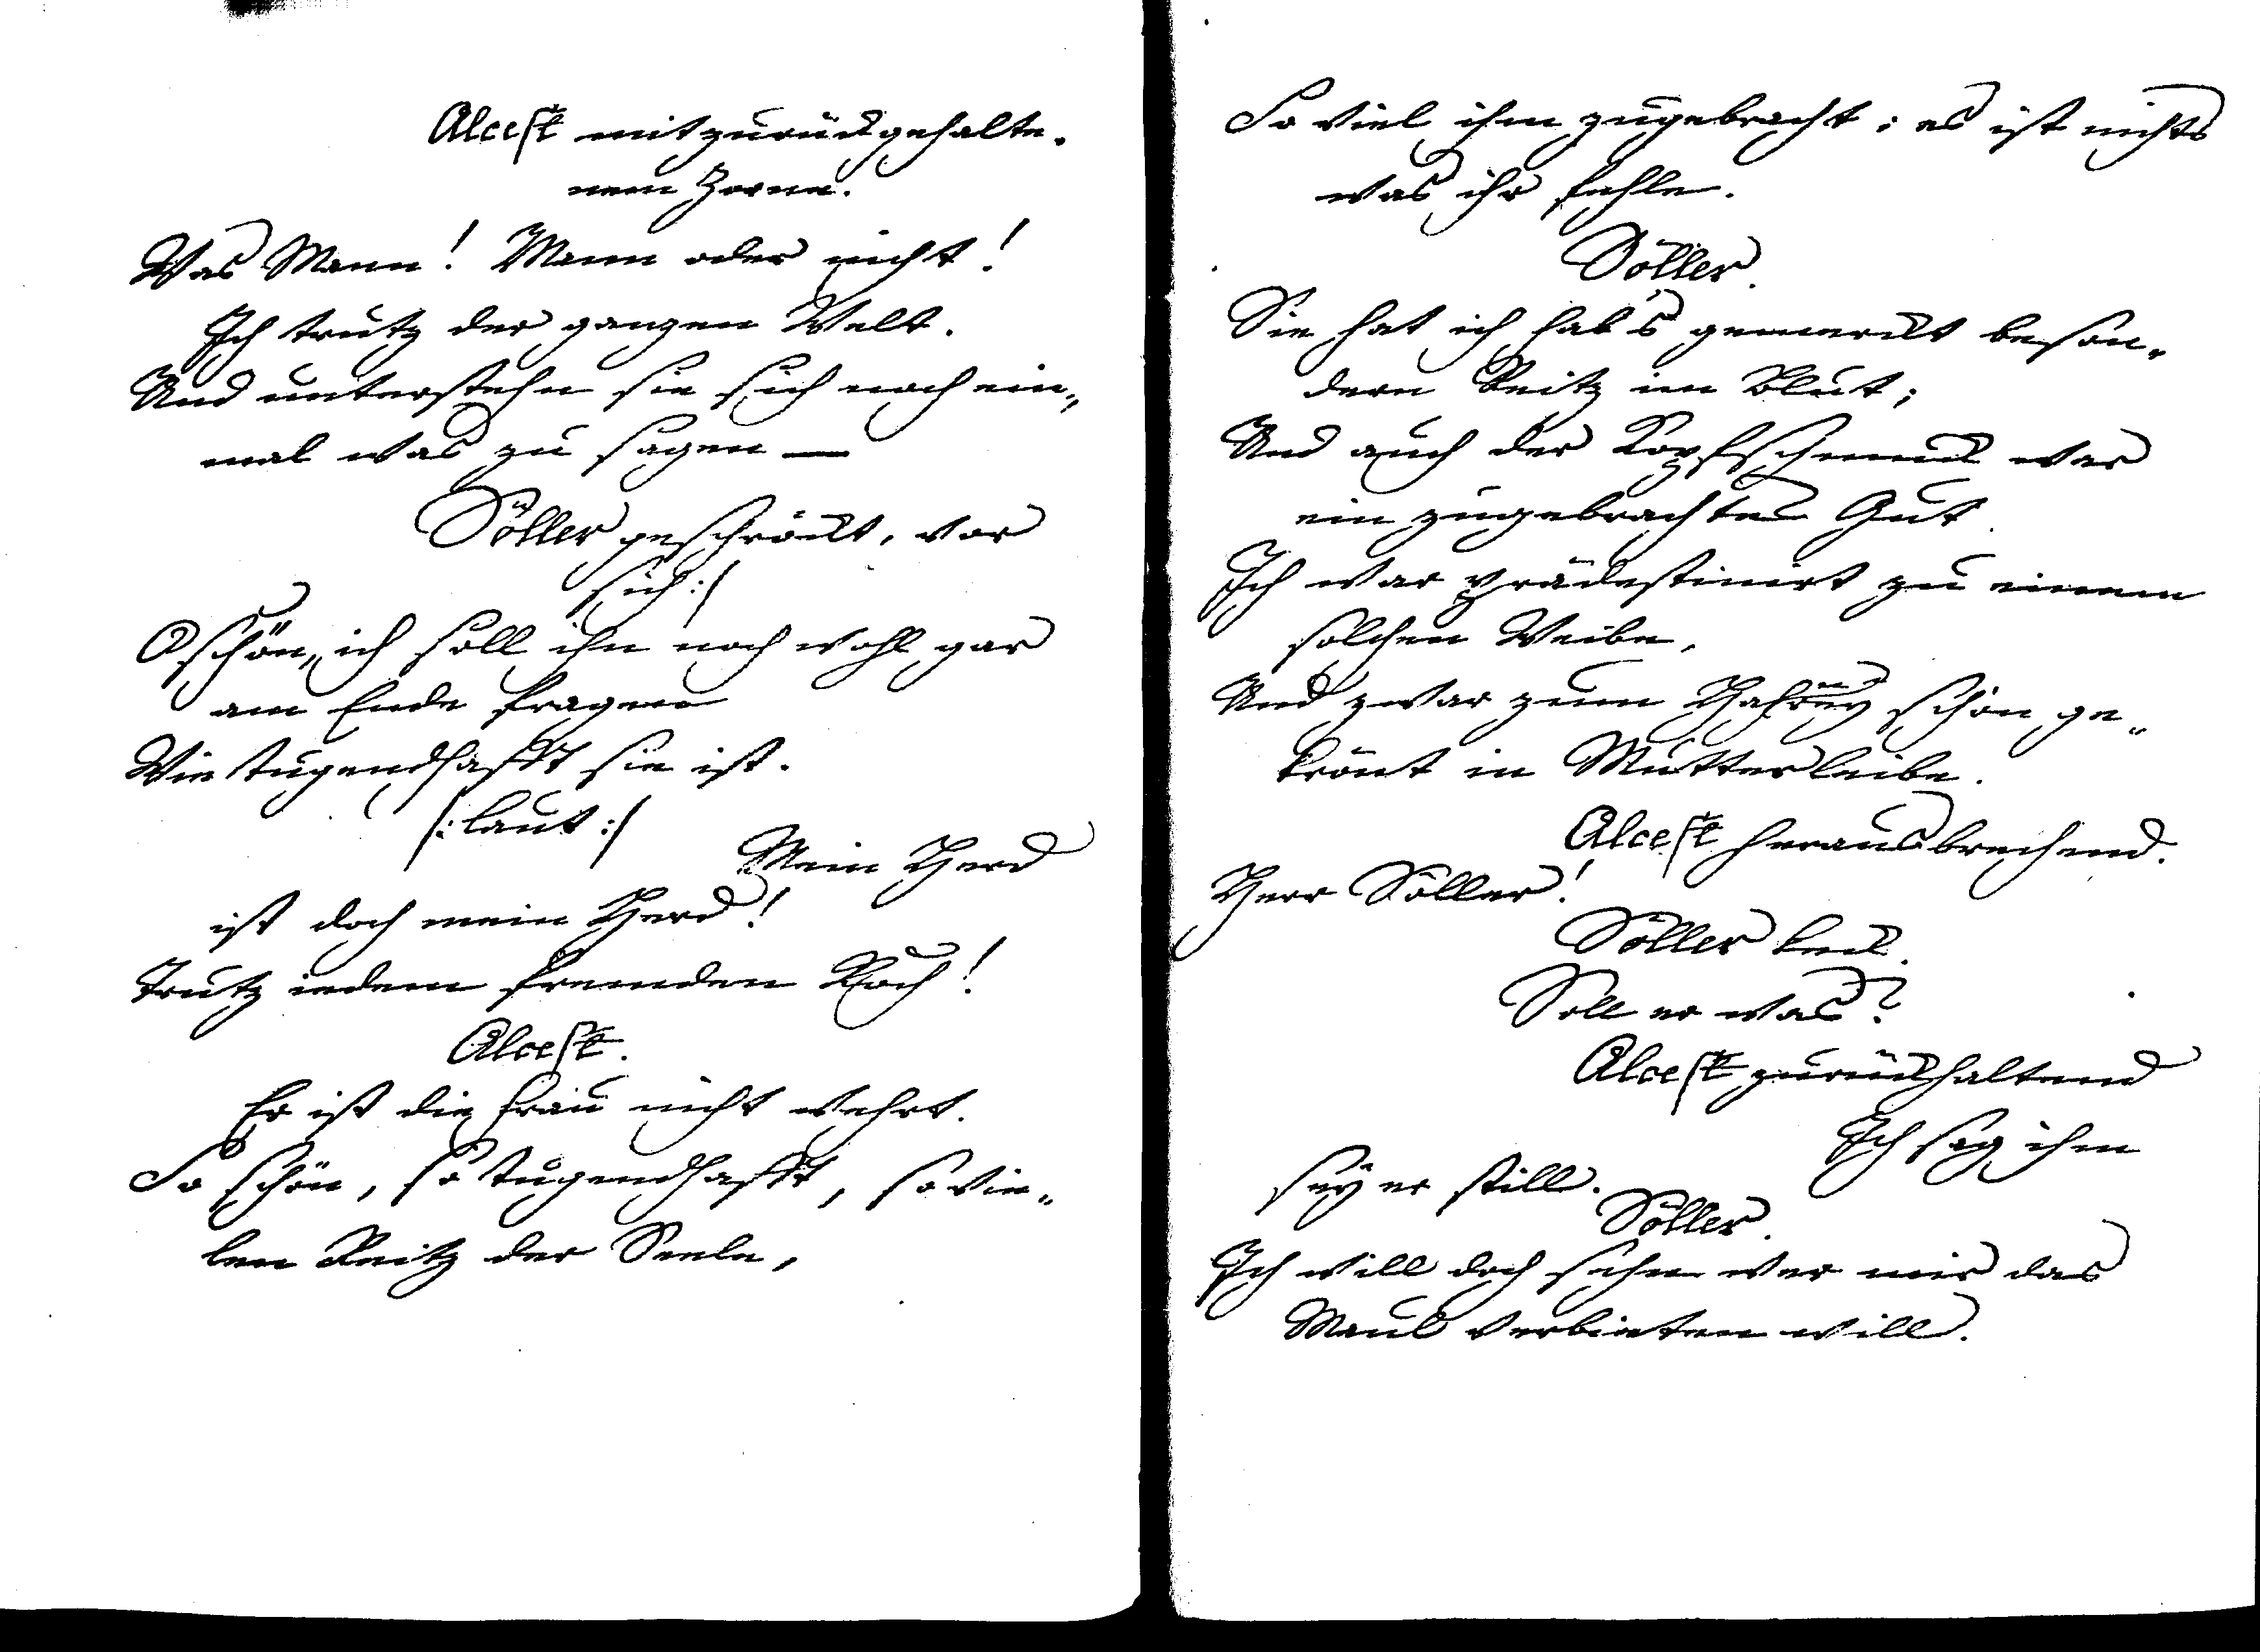 Alcest mit zurückgehalte-
nem Zorne.
Was Mann! Mann oder nicht!
Ich trutz der ganzen Welt.
Und unterstehn sie sich noch ein„
mal was zu sagen —
Söller geschröckt, vor
sich :/
O schön, ich soll ihn noch wohl gar
am Ende fragen
Wie tugendhafft sie ist.
/: laut :/
Mein Herd
ist doch mein Herd!
Trutz iedem fremden Koch!
Alcest.
Er ist die Frau nicht wehrt.
So schön, so tugendhafft, so vie„
len Reitz der Seele,
So viel ihm zugebracht; es ist nichts
was ihr fehle.
Söller.
Sie hat ich hab's gemerckt beson„
dern Reitz im Blut;
Und auch der Kopfschmuck war
ein zugebrachtes Gut.
Ich war prädestinirt zu einem
solchen Weibe,
Und zwar zum Hahnrey schon ge„
krönt in Mutterleibe.
Alcest herausbrechend.
Herr Söller!
Söller keck.
Soll er was?
Alcest zurückhaltend
Ich sag ihm
sey er still.
Söller.
Ich will doch sehn wer mir das
Maul verbieten will.